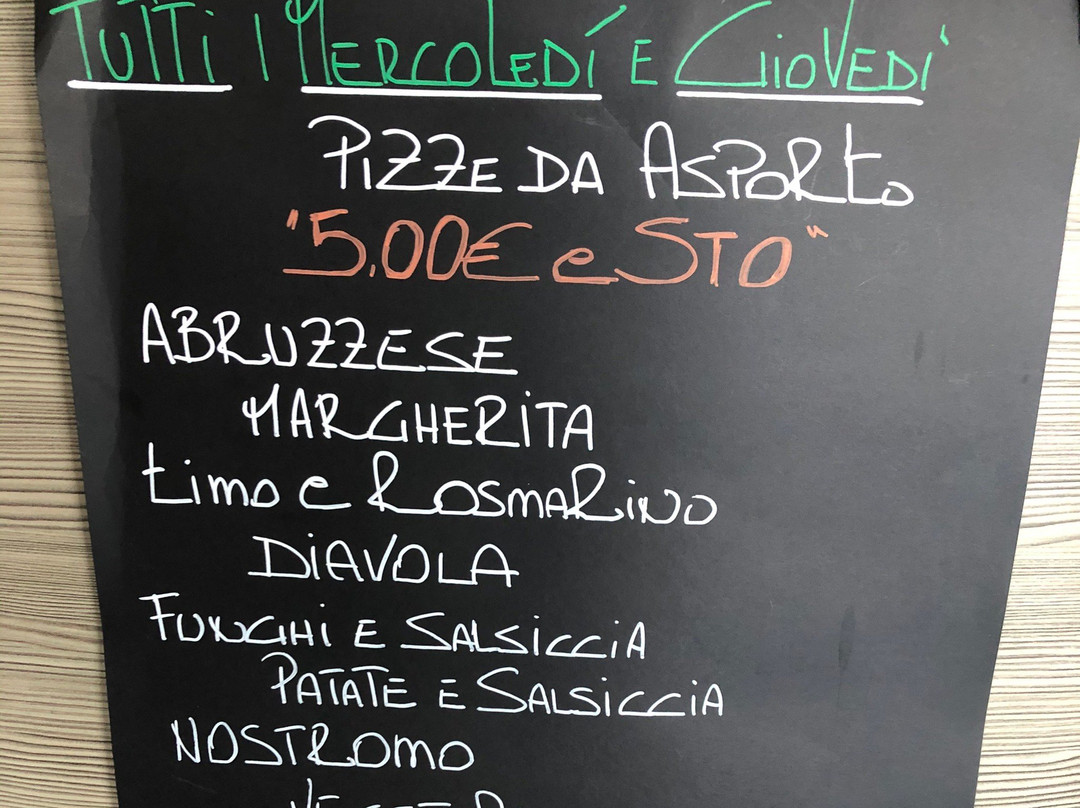 TUTTi I MERCOLEDí E GiOVEDi'
PiZZE DA ASPORto
"5,00€ e STO"
ABRUZZESE
MARGHERiTA
timo e ROSMARiNO
DiAVOLA
FUNGHi E SALSiCCiA
PATATE E SALSiCCiA
NOSTROmO